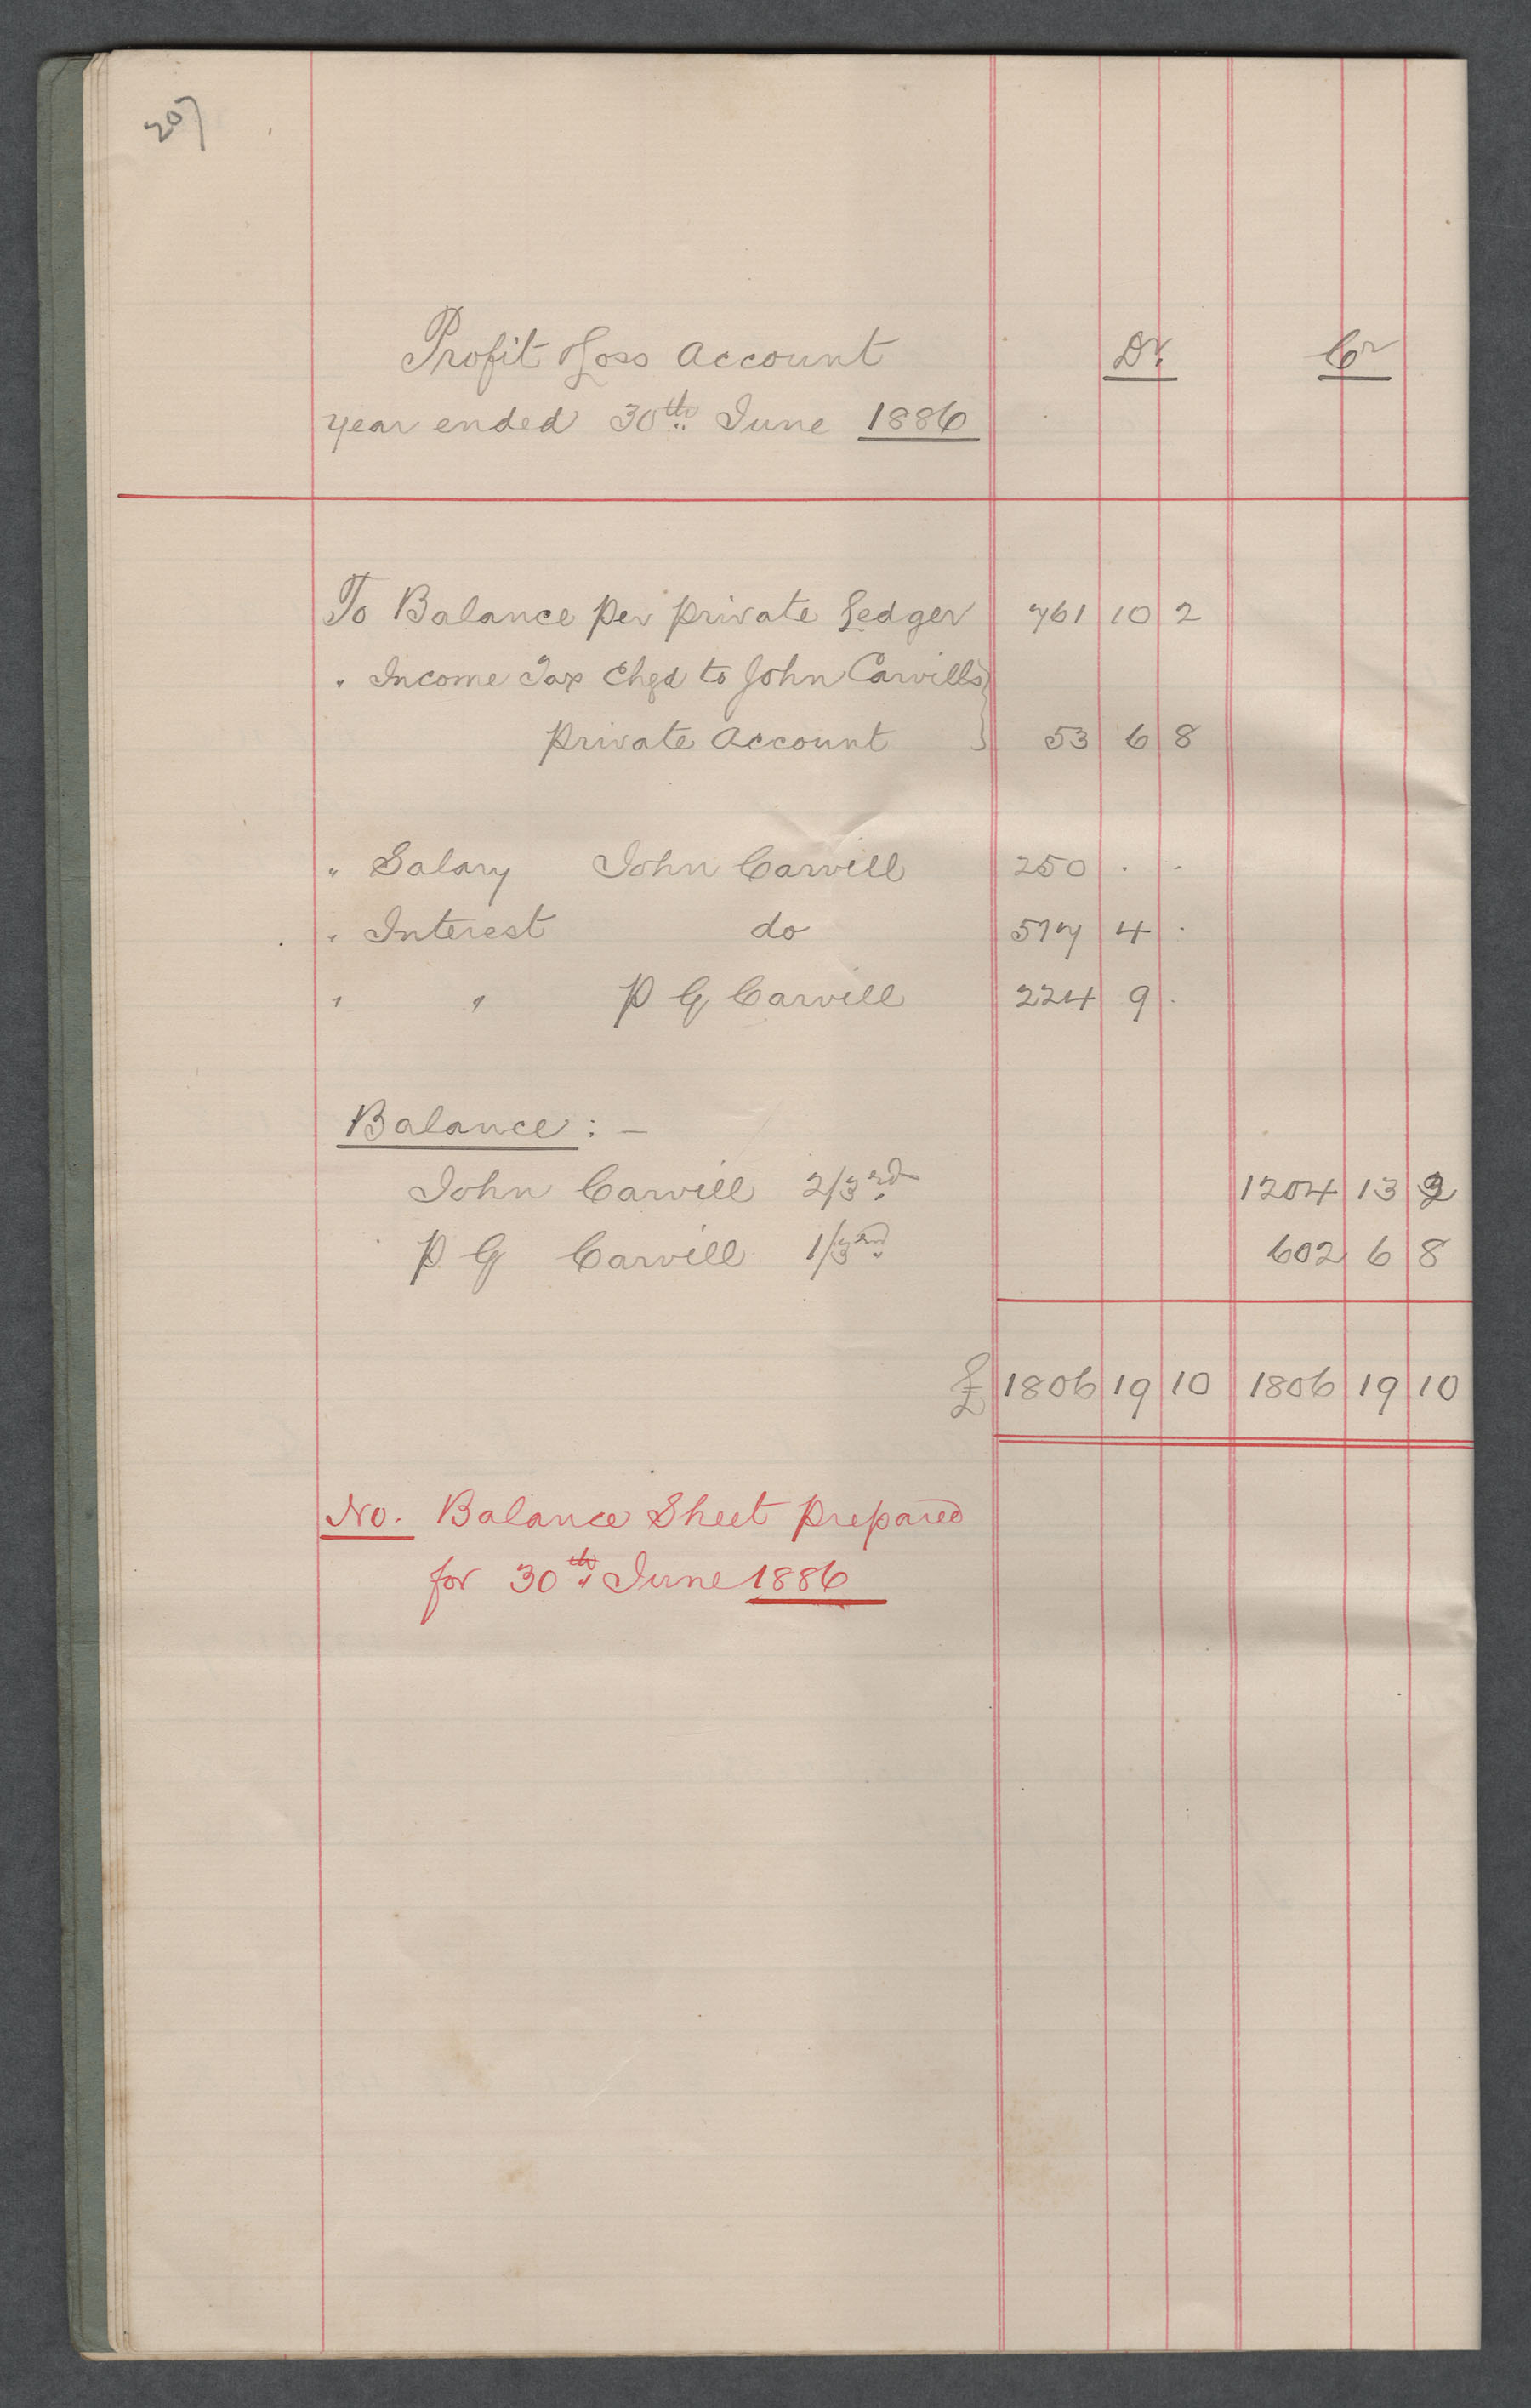 207
Profit & Loss Account Dr. Cr
year ended 30th June 1886
To Balance per private Ledger 761 10 2
" Income Tax Chgd to John Carvills
private account 53 6 8
" Salary John Carvill 250 . .
" Interest do 517 4 .
" " P G Carvill 224 9 .
Balance : —
John Carvill 2/3rd 1204 13 2
P G Carvill 1/3rd 602 6 8
£ 1806 19 10 1806 19 10
No. Balance Sheet prepared
for 30th June 1886